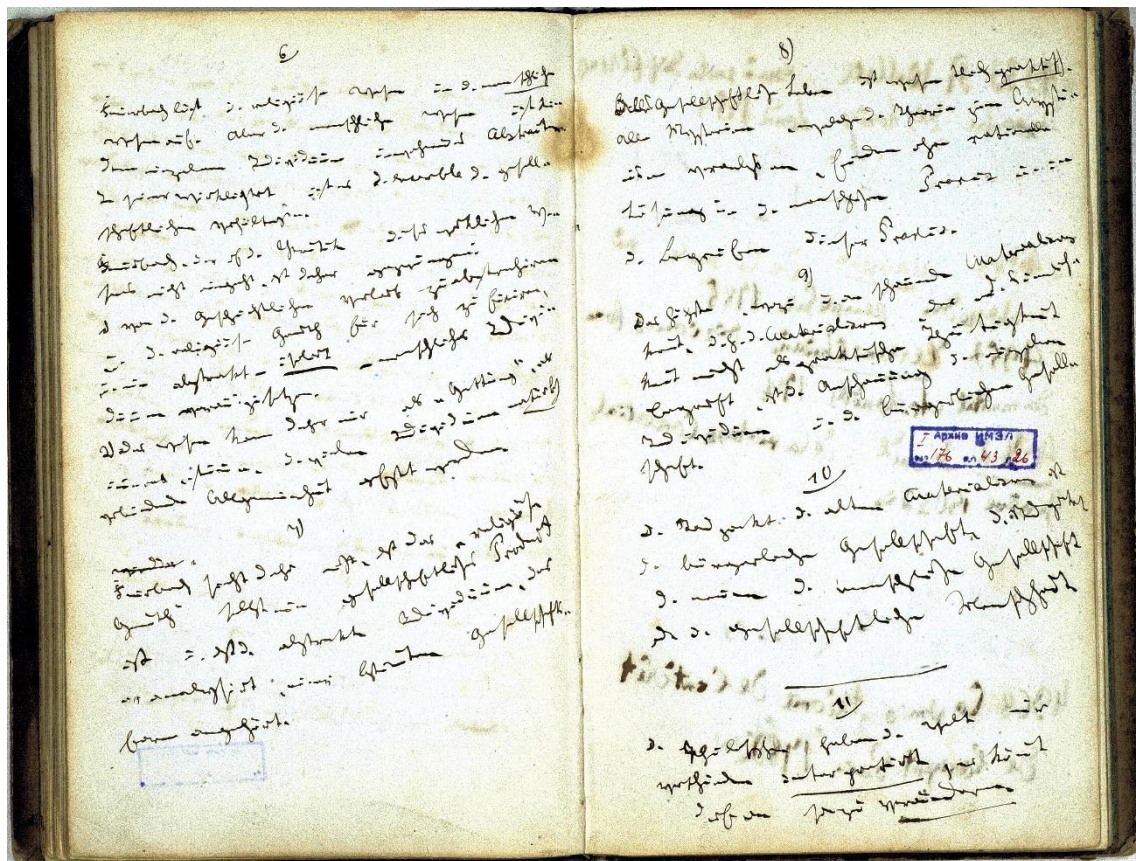 6)
Feuerbach löst d. religiöse Wesen in d. menschliche
Wesen auf. Aber d. menschliche Wesen ist kein
dem einzelnen Individuum inwohnendes Abstractum.
In seiner Wirklichkeit ist es d. ensemble d. gesell-
schaftlichen Verhältnisse.
Feuerbach, der auf d. Kritik dieses wirklichen We-
sens nicht eingeht, ist daher gezwungen:
1) von d. geschichtlichen Verlauf zu abstrahiren
u. d. religiöse Gemüth für sich zu fixiren, u.
ein abstrakt – isolirt – menschliches Indivi-
duum vorauszusetzen.
2) Das Wesen kann daher nur als „Gattung", als
innere, stumme, d. vielen Individuen natürlich
verbindende Allgemeinheit gefaßt werden.
7)
Feuerbach sieht daher nicht, daß das „religiöse
Gemüth" selbst ein gesellschaftliches Product
ist u. daß d. abstrakte Individuum, das
er analysirt, einer bestimmten Gesellschafts-
form angehört.
8)
Alles gesellschaftliche Leben ist wesentlich praktisch.
Alle Mysterien, welche d. Theorie zum Mystici-
mus veranlassen, finden ihre rationelle
Lösung in d. menschlichen Praxis u. in
d. Begreifen dieser Praxis.
9)
Das Höchste, wozu d. anschauende Materialismus
kömmt, d.h. d. Materialismus, der d. Sinnlich-
keit nicht als praktische Thätigkeit
begreift, ist d. Anschauung d. einzelnen
Individuen u. d. bürgerlichen Gesell-
schaft.
Архив ИМЭЛ
I № 176 вл. 43 26
10
D. Standpunkt d. alten Materialismus ist
d. bürgerliche Gesellschaft, d. Standpunkt
d. neuen d. menschliche Gesellschaft
od. d. gesellschaftliche Menschheit
11
D. Philosophen haben d. Welt nur
verschieden interpretirt, es kömmt
drauf an sie zu verändern.